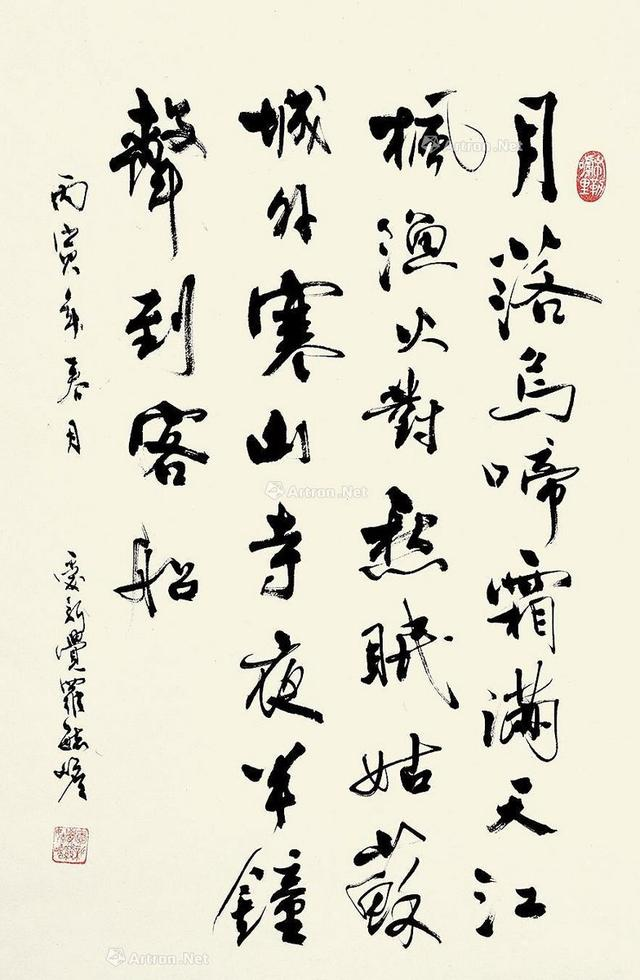 月落烏啼霜滿天江
楓漁火對愁眠姑蘇
城外寒山寺夜半鐘
聲到客船
丙寅年春月
愛新覺羅毓嶦
Artron.Net
Artron.Net
Artron.Net